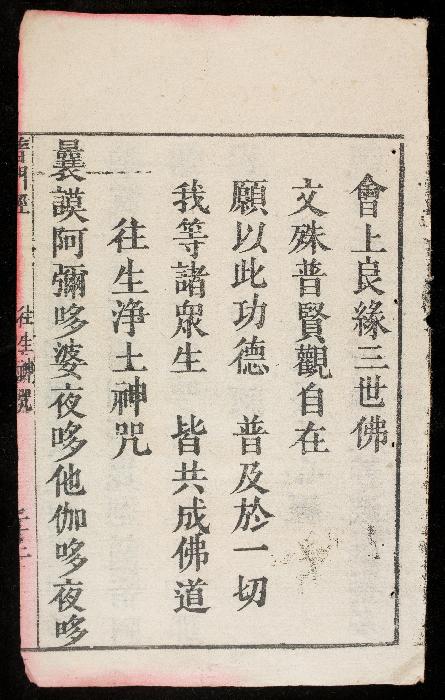 會上良緣三世佛
文殊普賢觀自在
願以此功德　普及於一切
我等諸衆生　皆共成佛道
往生淨土神咒
曩謨阿彌哆婆夜哆他伽哆夜哆
往生神咒